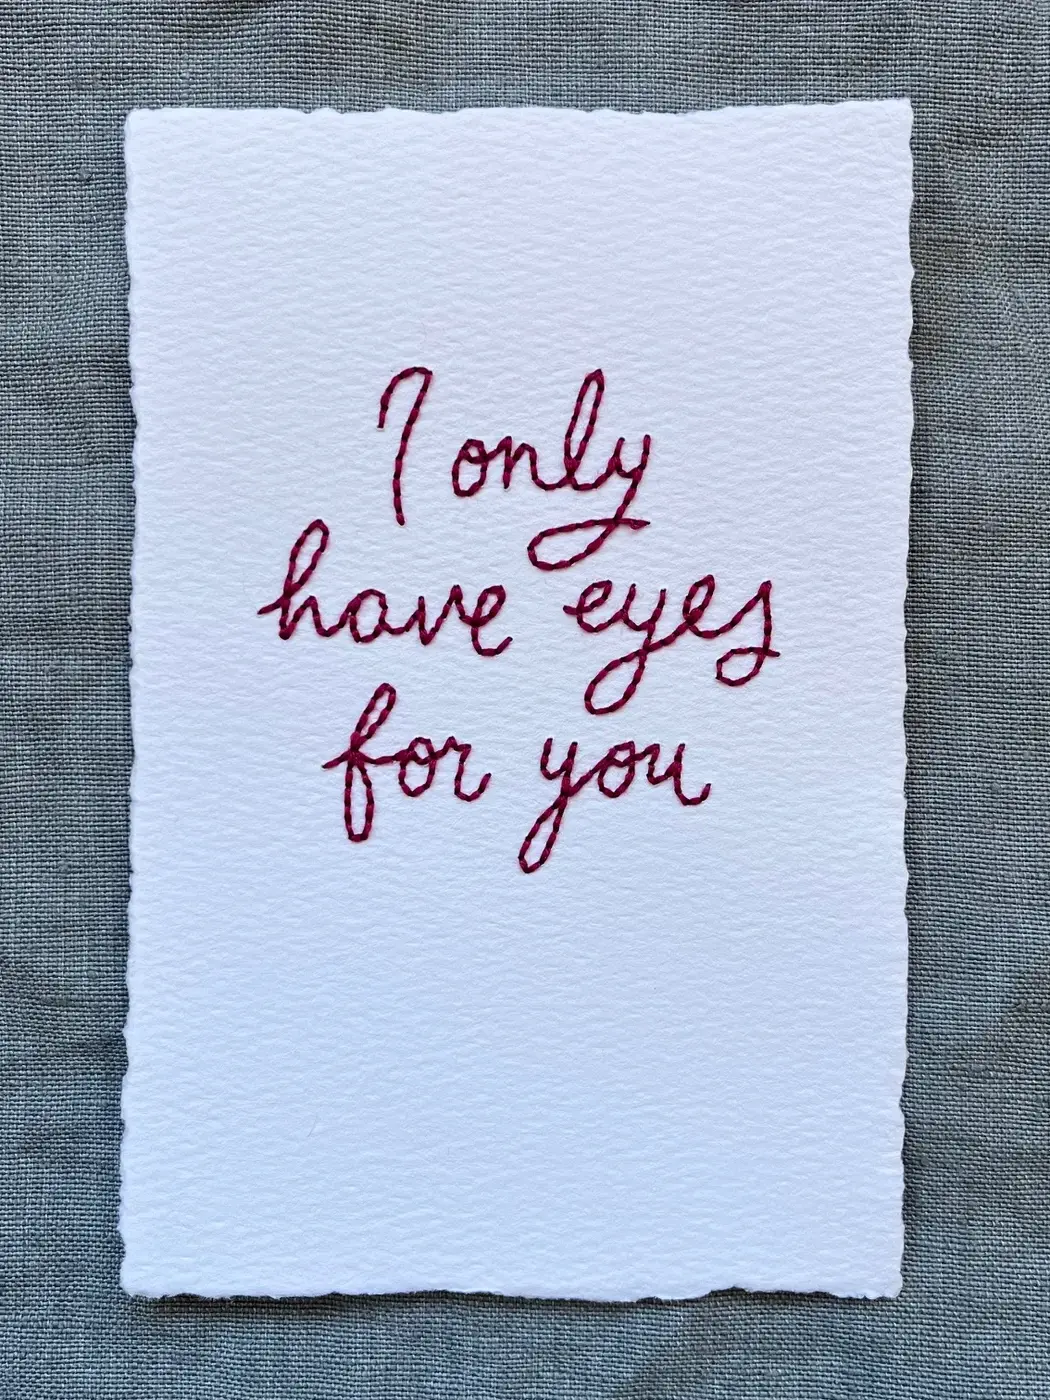 I only
have eyes
for you